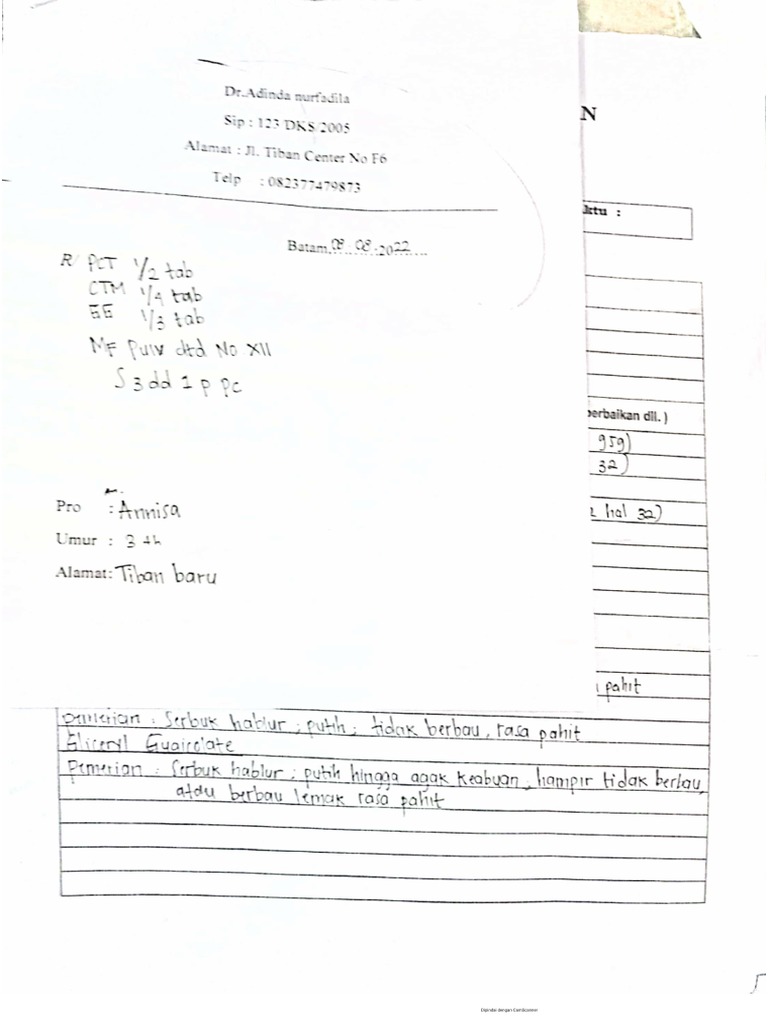 Dr.Adinda nurfadila
Sip : 123 DKS/2005
Alamat : Jl. Tiban Center No F6
Telp : 082377479873
Batam, 08. 08 .2022
R/ PCT 1/2 tab
CTM 1/4 tab
GG 1/3 tab
MF Pulv dtd No XII
S 3 dd 1 p pc
Pro : Annisa
Umur : 3 th
Alamat: Tiban baru
N
ktu :
perbaikan dll. )
959)
32)
2 hal 32)
pahit
Pemerian : Serbuk hablur ; putih ; tidak berbau, rasa pahit
Gliceryl Guaicolate
Pemerian : Serbuk hablur ; putih hingga agak keabuan ; hampir tidak berbau,
atau berbau lemak rasa pahit
Dipindai dengan CamScanner